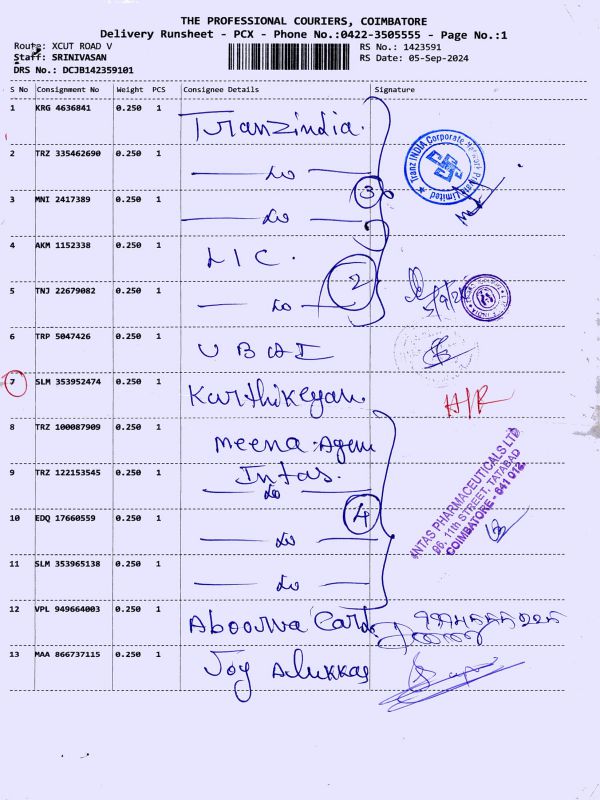 THE PROFESSIONAL COURIERS, COIMBATORE
Delivery Runsheet - PCX - Phone No.:0422-3505555 - Page No.:1
Route: XCUT ROAD V RS No.: 1423591
Staff: SRINIVASAN RS Date: 05-Sep-2024
DRS No.: DCJB142359101
S No Consignment No Weight PCS Consignee Details Signature
1 KRG 4636841 0.250 1 Tranzindia.
2 TRZ 335462690 0.250 1
Tranz INDIA Corporate Network Private Limited
3
3 MNI 2417389 0.250 1
4 AKM 1152338 0.250 1 LIC.
2
5 TNJ 22679082 0.250 1
6 TRP 5047426 0.250 1
7 SLM 353952474 0.250 1 Karthikeyan.
8 TRZ 100087909 0.250 1 Meena Agen
9 TRZ 122153545 0.250 1 Intas.
INTAS PHARMACEUTICALS LTD
96, 11th STREET, TATABAD
COIMBATORE - 641 012.
4
10 EDQ 17660559 0.250 1
11 SLM 353965138 0.250 1
12 VPL 949664003 0.250 1 Aboorva Card
13 MAA 866737115 0.250 1 Joy Alukkas